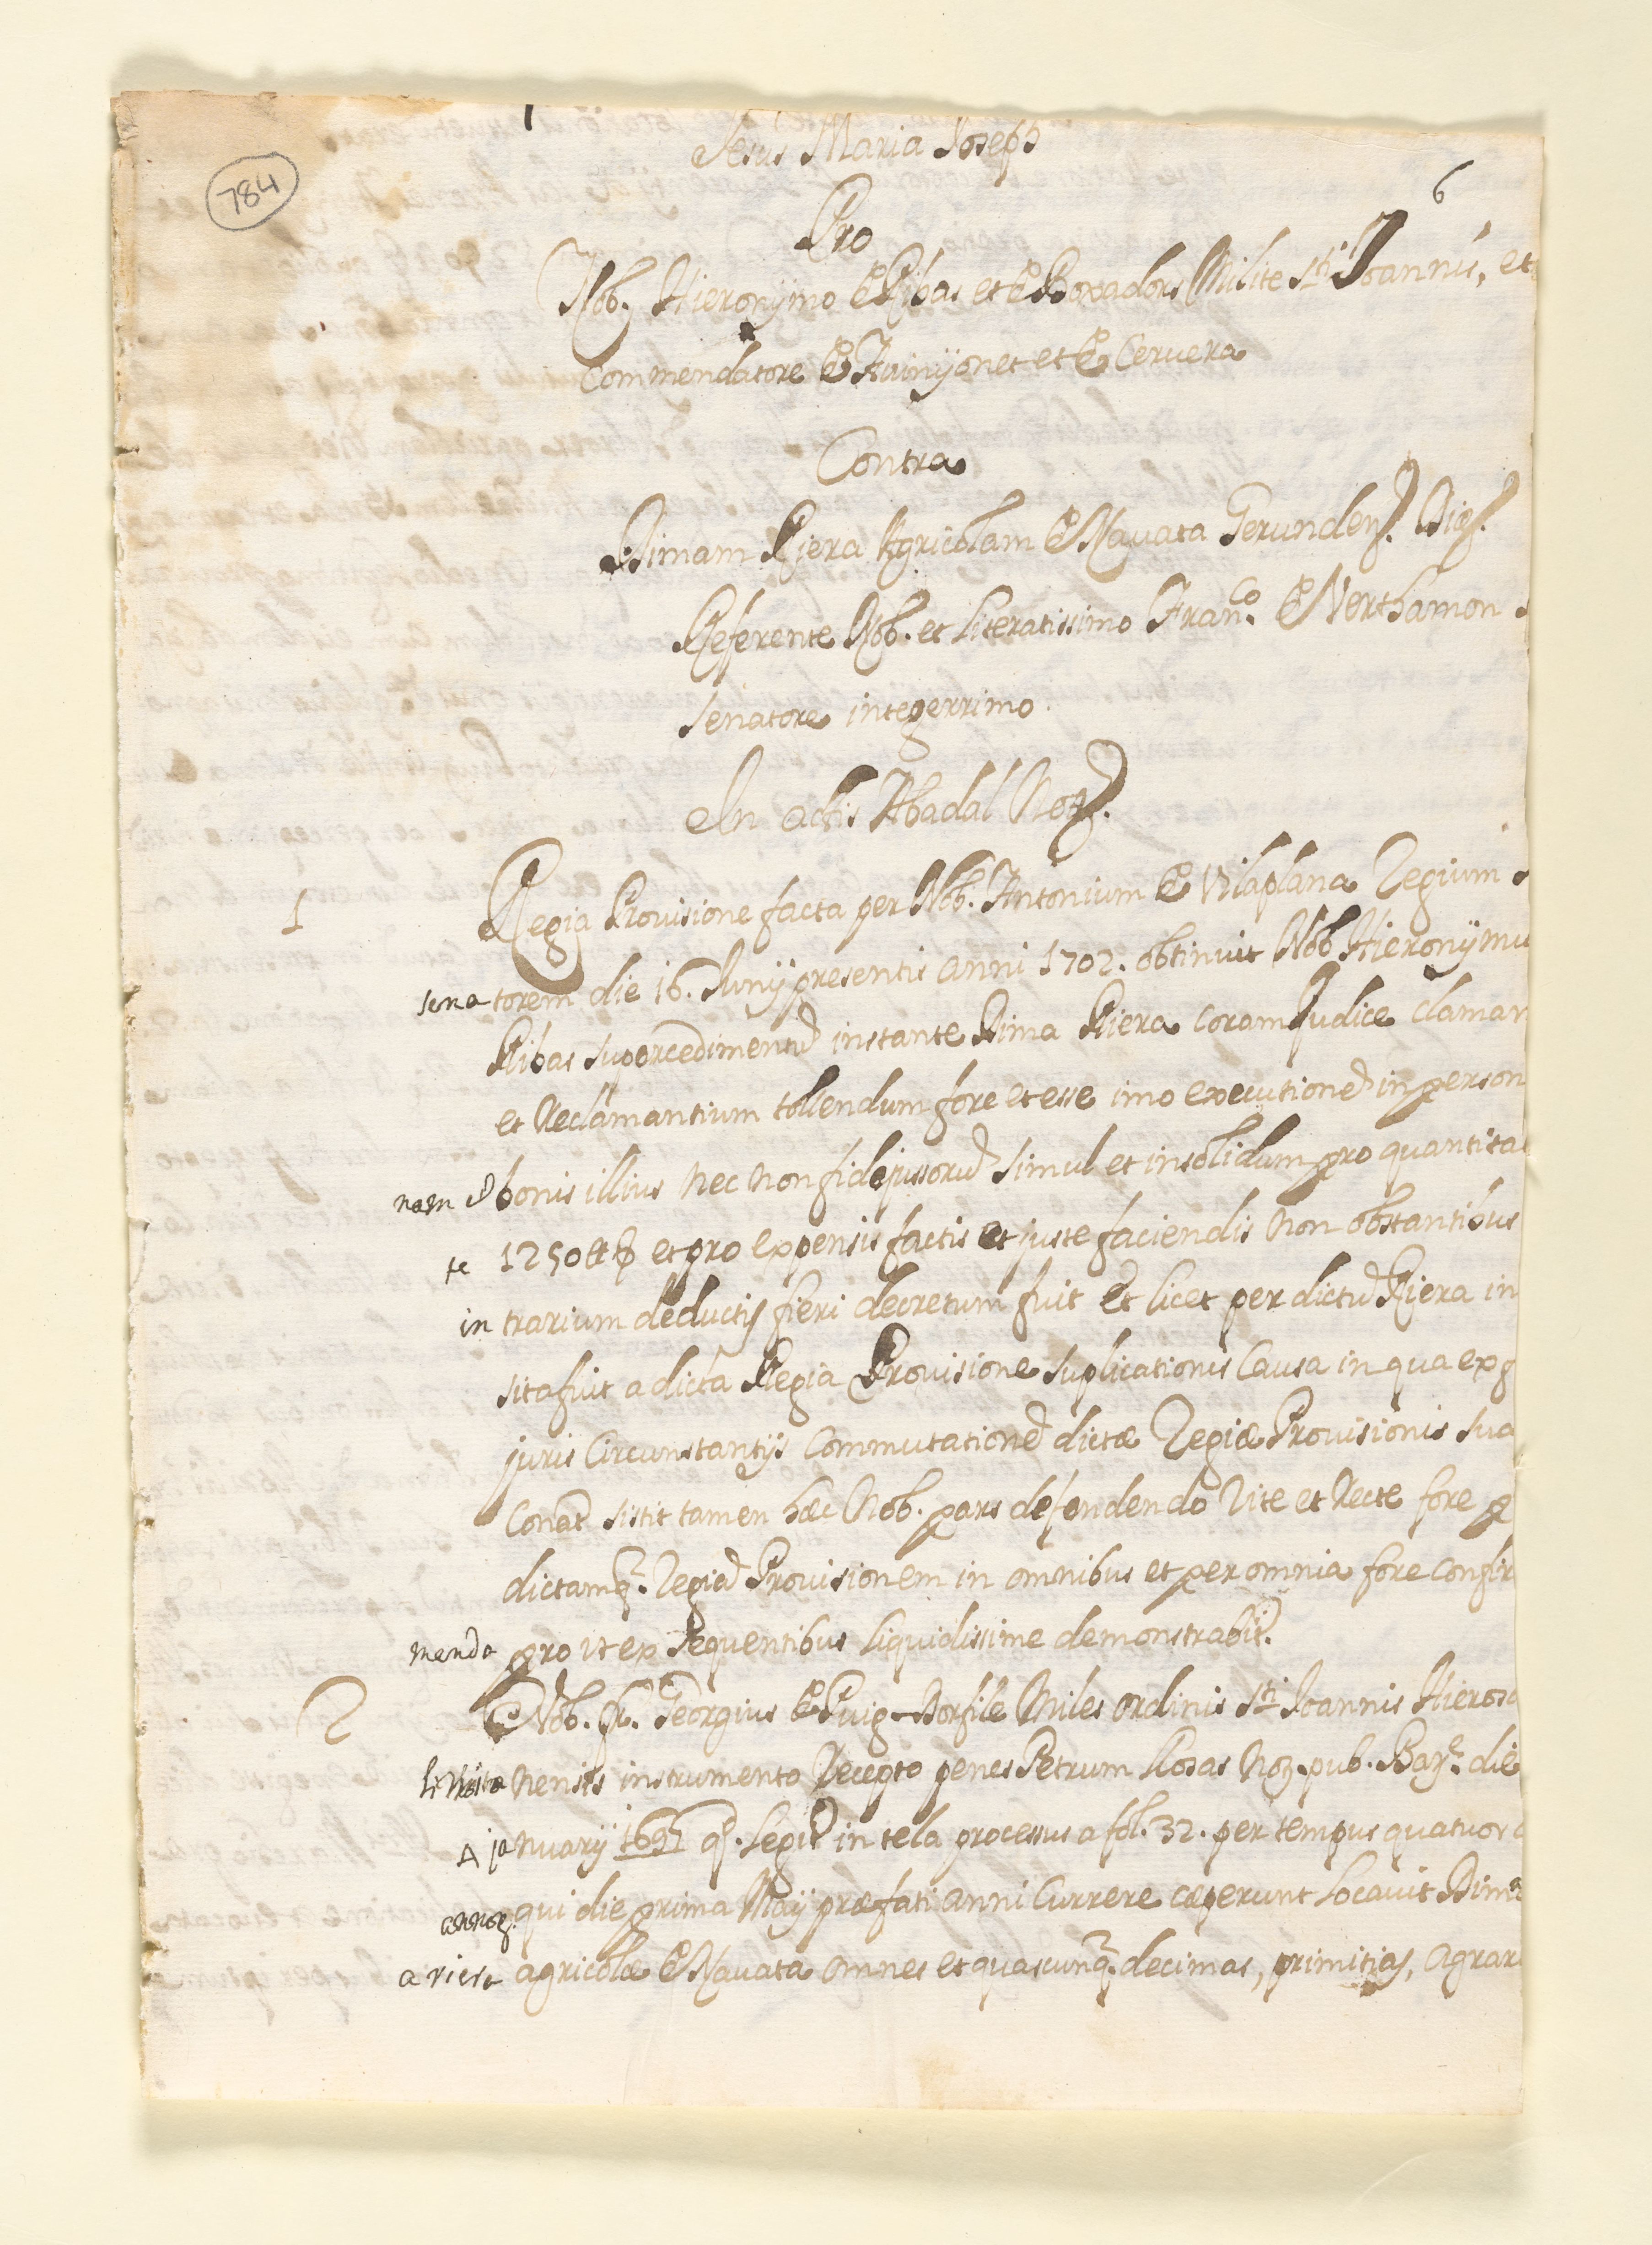 784
6
Jesus Maria Joseph
Pro
Nob. Hieronymo de Ribas et de Boxadors Milite Sti. Joannis, et
Commendatore de Avinyonet et de Cervera
Contra
Dimam Riera Agricolam de Navata Gerunden. Diæs.
Referente Nob. et Literatissimo Franco. de Verthamon
Senatore integerrimo.
In actis Abadal Not.
1 Regia Provisione facta per Nob. Antonium de Vilaplana Regium
sena torem die 16. Junij presentis anni 1702. obtinuit Nob. Hieronymu
Ribas supercedimentu instante Dima Riera coram Judice claman
et Reclamantium tollendum fore et esse imo executione in person
nam et bonis illius nec non fidejussoru simul et insolidum pro quantita
te 1250 et pro expensis factis et juste faciendis non obstantibus
in trarium deductis fieri decretum fuit et licet per dictu Riera in
sita fuit a dicta Regia Provisione suplicationis Causa in qua ex
juris Circunstantijs Commutatione dictæ Regiæ Provisionis sua
Conat sistit tamen hæc Nob. pars defendendo Rite et Recte fore p
dictamq. Regia Provisionem in omnibus et per omnia fore confir
manda pro ut ex sequentibus liquidissime demonstrabit.
2 Nob. fr. Georgius de Puig-Dorfile Miles ordinis Sti Joannis Hieroso
nensis instrumento Recepto penes Petrum Rosas Not. pub. Bar. die
4 ja nuarij 1697 q. legit in tela processus a fol. 32. per tempus quatuor
annor. qui die prima Maij præfati anni Currere cæperunt Locavit Dimæ
a riera agricolæ de Navata omnes et quascunq. decimas, primitias, agrar